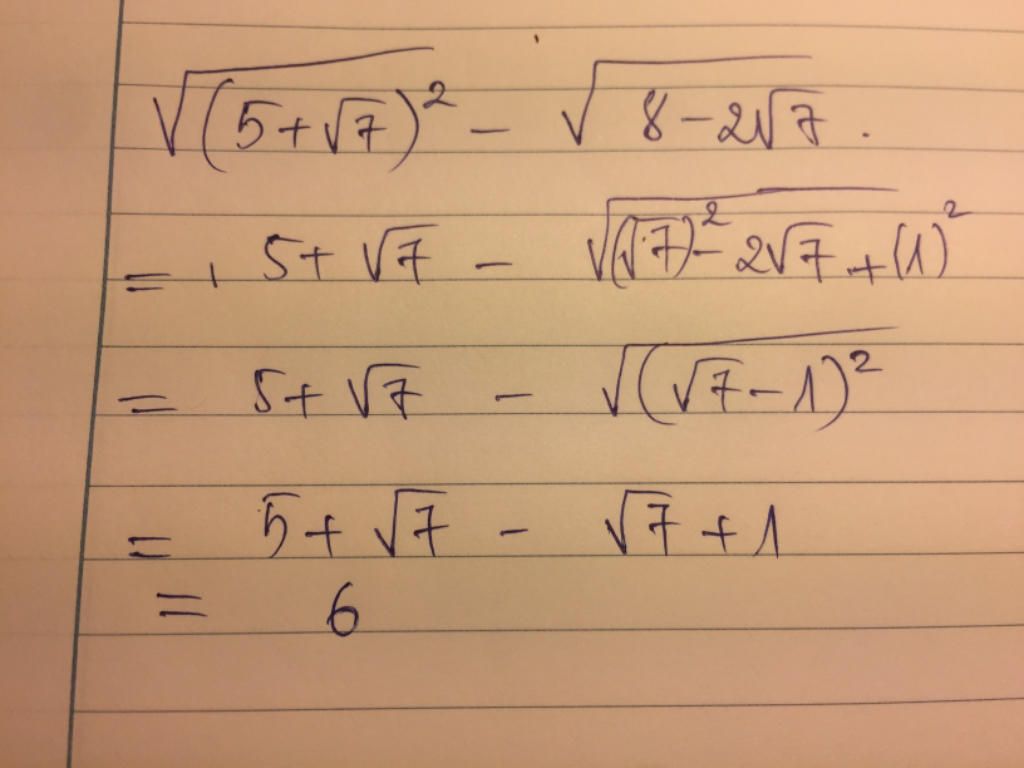 √(5+√7)² − √8−2√7.
= 5+√7 − √(√7)²−2√7+(1)²
= 5+√7 − √(√7−1)²
= 5+√7 − √7+1
= 6